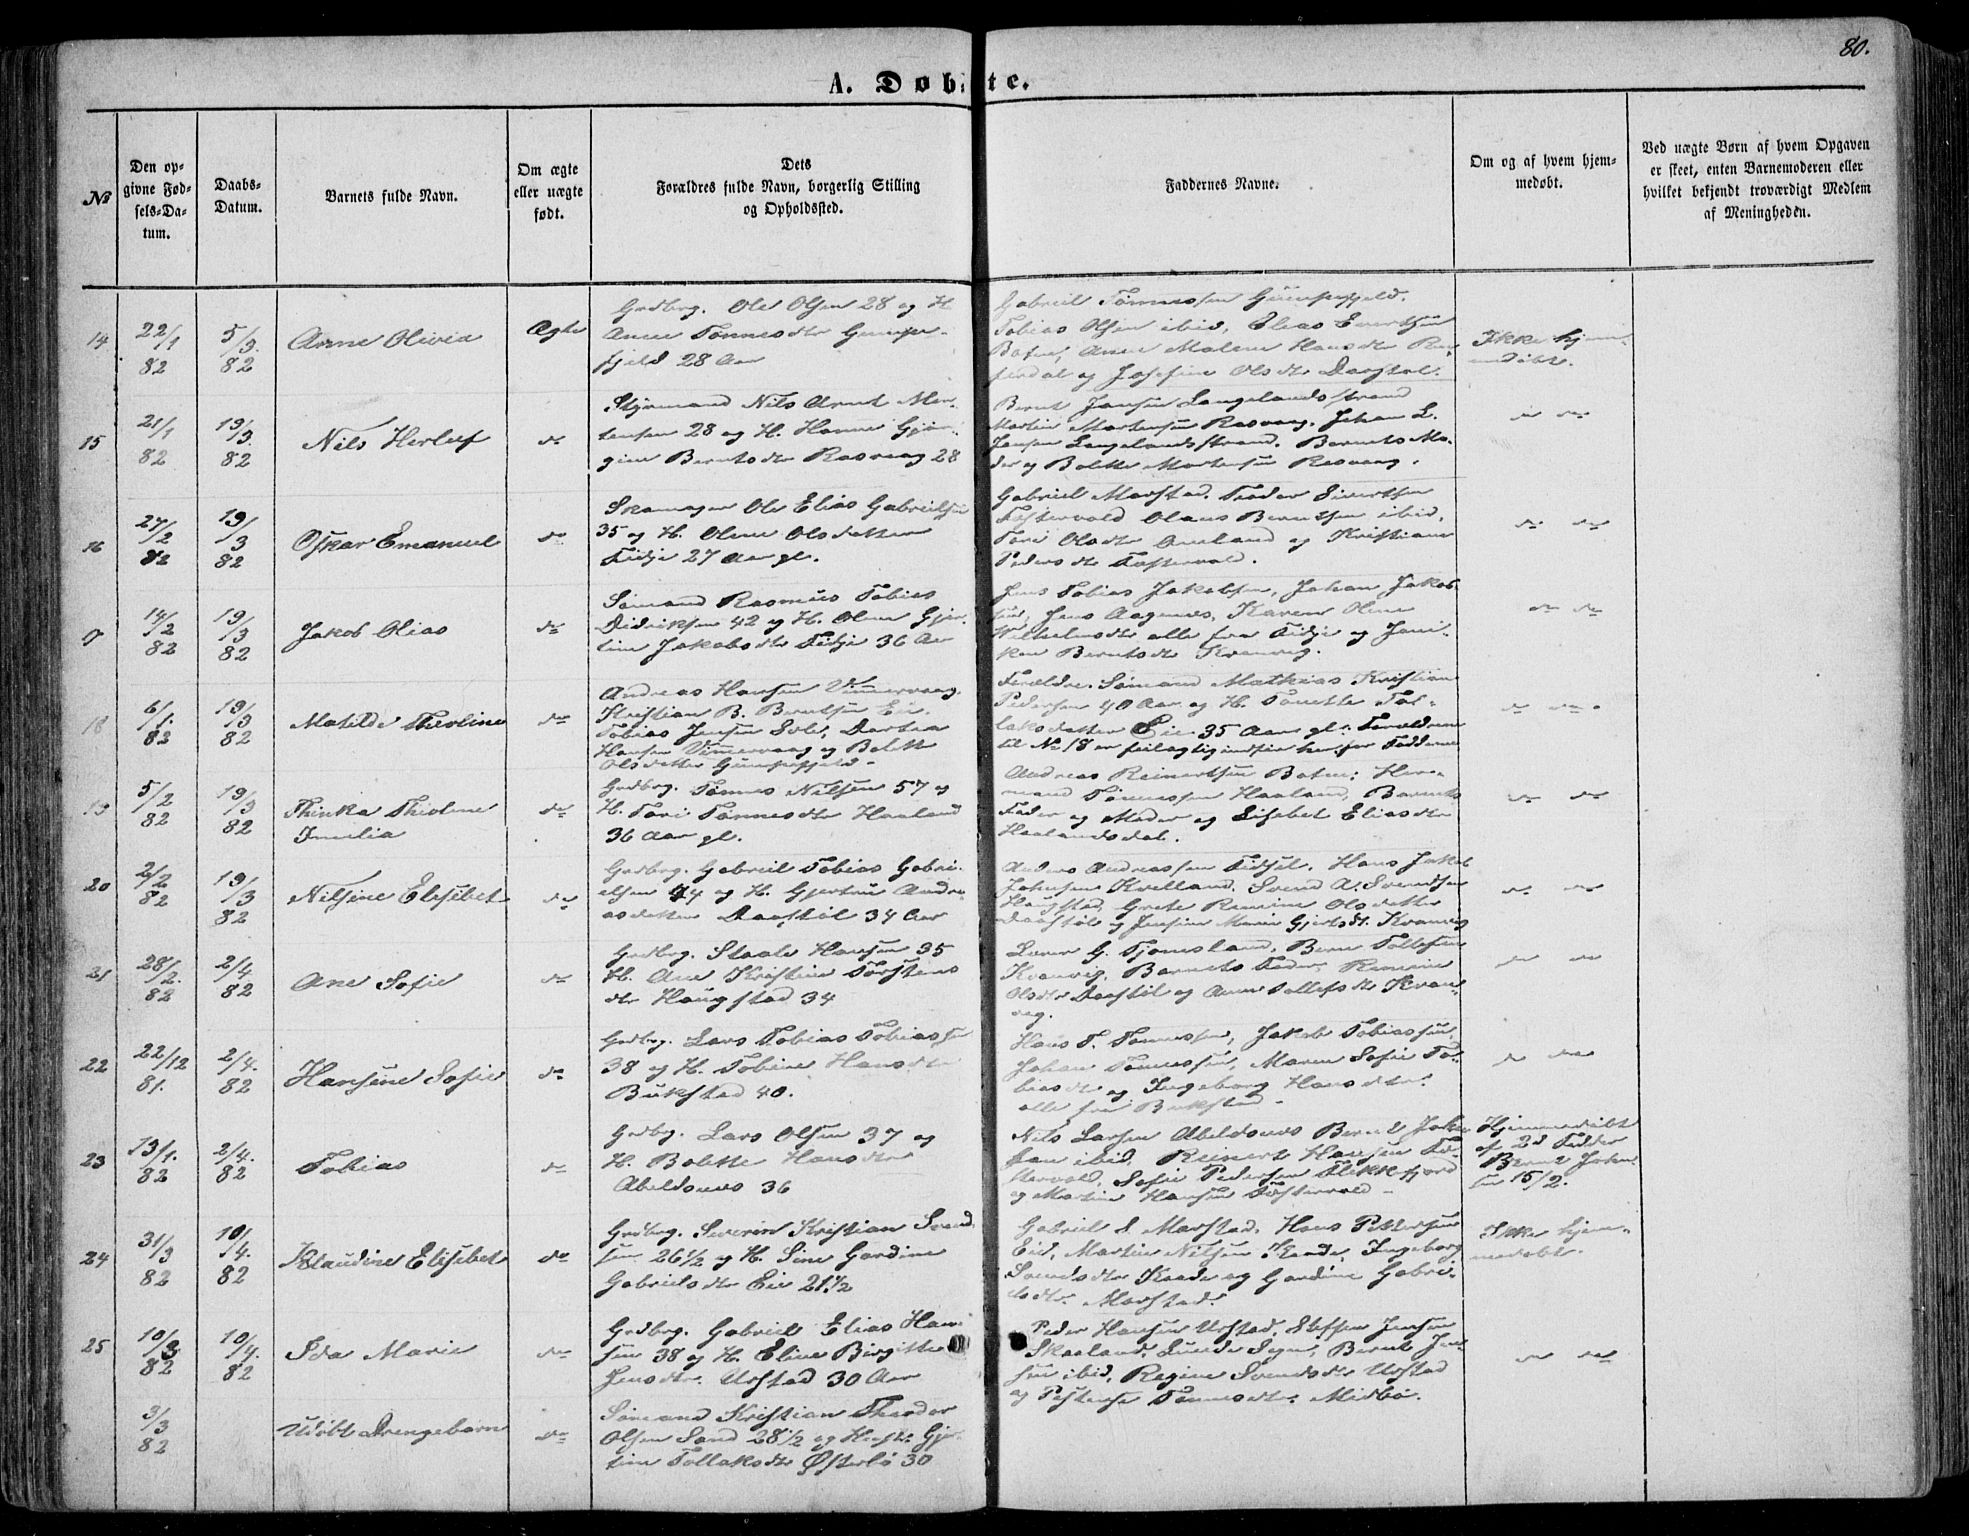 80.
A. Døbte.
№
Den op-
givne Fød-
sels-Da-
tum.
Daabs-
Datum.
Barnets fulde Navn.
Om ægte
eller uægte
født.
Dets
Forældres fulde Navn, borgerlig Stilling
og Opholdssted.
Faddernes Navne.
Om og af hvem hjem-
medøbt.
Ved uægte Børn af hvem Opgaven
er skeet, enten Barnemoderen eller
hvilket bekjendt troværdigt Medlem
af Menigheden.
14
22/1
82
5/3.
82
Anne Olivia
Ægte
Grdbrg. Ole Olsen 28 og H.
Anne Tønnesdtr
fjeld 28 Aar
Gabriel Tønnessen
Tobias Olsen ibid, Elias Evertsen
Anne Malene Hansdtr
og Josefine Olsdtr Dragstøl.
Ikke hjem-
medøbt.
15
21/1
82
19/3.
82
Nils Herluf
do
Styrmand Nils Arnt Mor-
tensen 28 og H. Hanne Gjør-
gine Berntsdtr Rasvaag 28
Bernt Jansen Langelandsstrand
Martin Mortensen Rasvaag. Johan L.
Jensen Langelandsstrand. Barnets Mo-
der og Bolette Mortensen Rasvaag.
do do
16
27/2
82
19/3
82
Oskar Emanuel
do
Skomager Ole Elias Gabrielsen
35 og H. Olene Olsdatter
Fidje 27 Aar gl.
Gabriel Marstad. Teodor Sivertsen
Fostervold Olaus Berntsen ibid,
Tori Olsdtr og Kristiane
Pedersdtr Fostervold.
do do
17
14/2
82
19/3
82
Jakob Olias
do
Sømand Rasmus Tobias
Didriksen 42 og H. Olene Gjer-
tine Jakobsdtr Fidje 36 Aar
Jens Tobias Jakobsen, Johan Jakob-
sen, Jens Aagenes, Karen Olene
Wilhelmsdtr alle fra Fidje og Jani-
ken Berntsdtr Kvanvig.
do do
18
6/1.
82
19/3
82
Matilde Thevline
do
Andreas Hansen Vimmervaag.
Kristian B. Berntsen Eie.
Tobias Jensen Dortea
Hansen Vimmervaag og Bolette
Olsdatter
Forældre. Sømand Mathias Kristian
Pedersen 40 Aar og H. Tonette Tol-
laksdatter Eie 35 Aar gl. Forældrene
til No 18 er feilagtig indført her for Fadderne
do do.
19
5/2
82
19/3
82
Thinka Thevline
Imelia
do
Grdbrg. Tønnes Nilsen 57 og
H. Tori Tønnesdtr Haaland
36 Aar gl.
Andreas Reinertsen Boten: Her-
mand Tønnessen Haaland, Barnets
Fader og Moder og Lisabet Eliasdtr
Haalandsdal.
do do
20
2/2
82
19/3
82
Nilsine Elisabet
do
Grdbrg. Gabriel Tobias Gabri-
elsen 44 og H. Gjertrue Andre-
asdatter Dragstøl 34 Aar
Anders Andreassen Hans Jakob
Johnsen Kvelland. Svend A. Svendsen
Haugstad, Grete Remine Olsdatter
Dragstøl og Jensine Marie Gjertsdt. Kvanvig
do do
21
28/2.
82
2/4
82
Ane Sofie
do
Grdbrg. Staale Hansen 35
H. Ane Kristine Torstens
dtr Haugstad 34
G. Tjomsland. Bern Tollefsen
Kvanvig. Barnets Fader. Remine
Olsdtr Dragstøl og Anne Tollefsdtr Kvan-
vig.
do do
22
22/12
81.
2/4.
82
Hansine Sofie
do
Grdbrg. Lars Tobias Tobiassen
38 og H. Tobine Hansdtr
Bukstad 40.
Hans T. Tønnessen, Jakob Tobiassen,
Johan Tønnessen, Maren Sofie To-
biasdtr og Ingeborg Hansdtr.
alle fra Bukstad -
do do
23
13/1.
82
2/4.
82
Tobias
do
Grdbrg. Lars Olsen 37 og
H. Bolette Hansdtr
Abelsnes 36
Nils Larsen Abelsnes Bernt John-
sen ibid. Reinert Hansen Fo-
stervold, Sofie Pedersen Flekkefjord
og Martine Hansen Fostervold -
Hjemmedøbt
af Fadder
Bernt John-
sen 15/2.
24
31/3
82
10/4.
82
Klaudine Elisabet
do
Grdbrg. Severin Kristian Svend-
sen 26½ og H. Sine Gardine
Gabrielsdtr Eie 21½
Gabriel S. Marstad. Hans Pettersen
Eie, Martin Nilsen Ingeborg
Svendsdtr og Gardine Gabri-
elsdtr. Marstad.
Ikke hjem-
medøbt.
25
10/3
82
10/4.
82
Ida Marie
do
Grdbrg. Gabriel Elias Han-
sen 38 og H. Eline Birgitte
Jensdtr. Urstad 30 Aar
Peder Hansen Urstad, Steffen Jensen
Skaaland. Lunde Sogn, Bernt Jen-
sen ibid, Regine Svendsdtr Urstad
og Tønnesdtr. Midbø.
do do
3/3
82
Udøbt Drengebarn
do
Sømand Kristian Theodor
Olsen Sand 28½ og Hustr. Gjer-
tine Tollaksdtr Østerbø 30